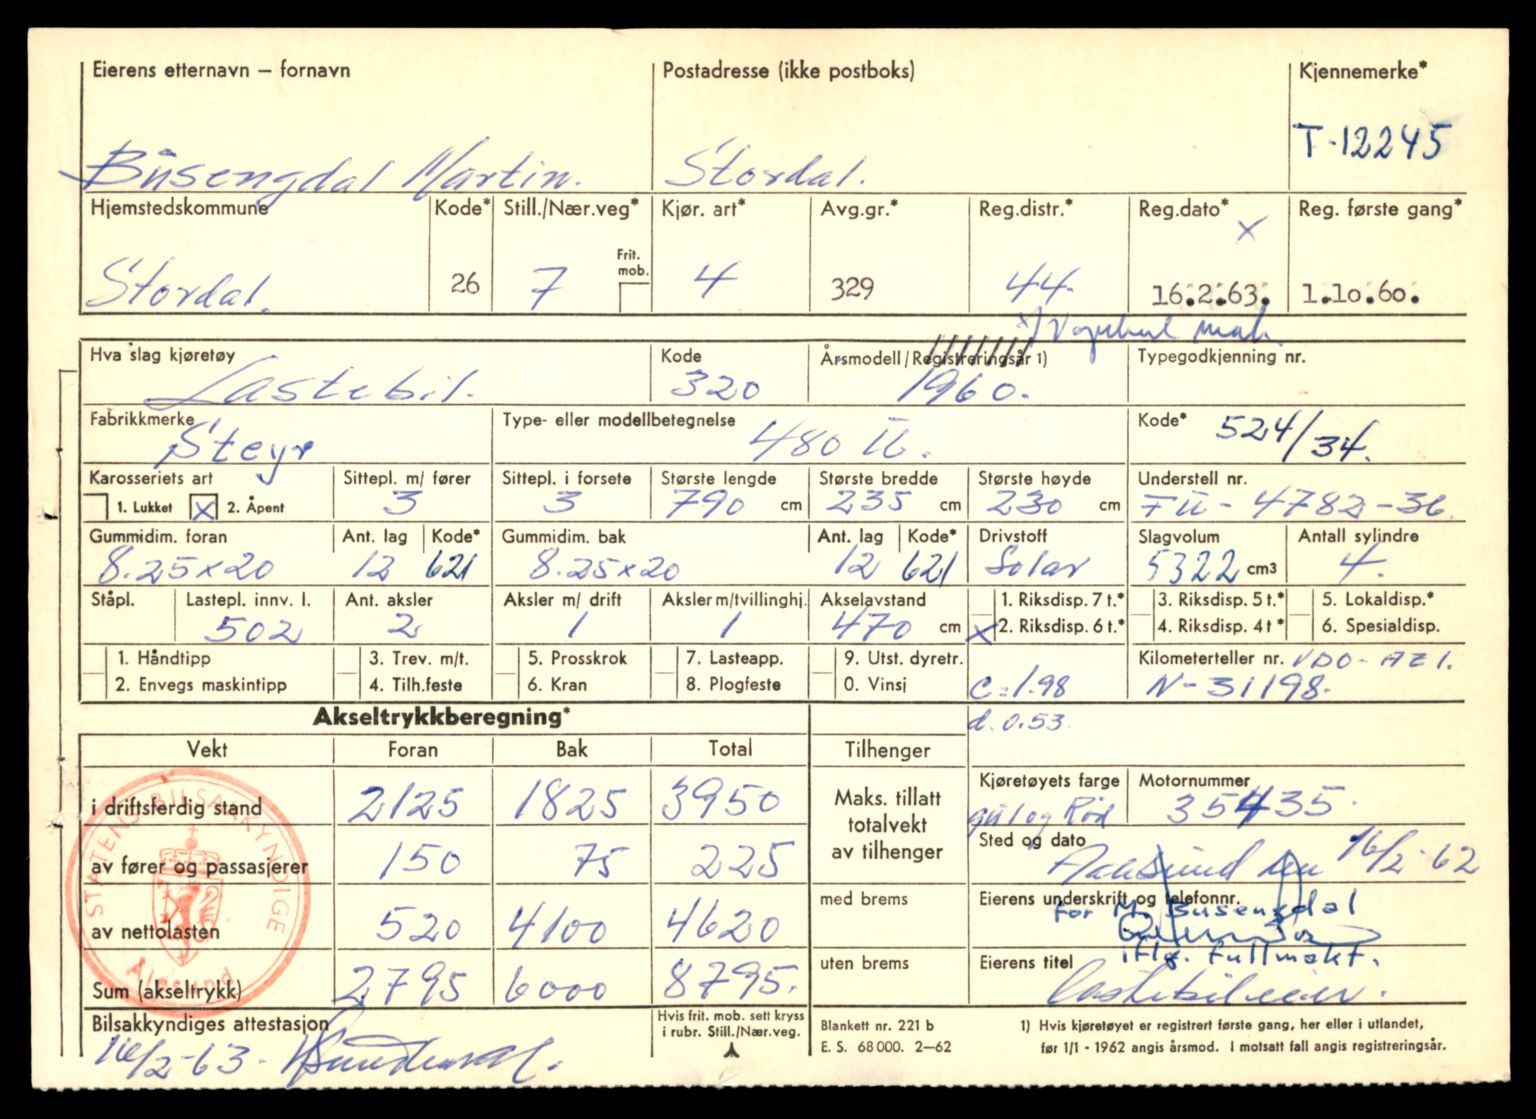 Eierens etternavn – fornavn Postadresse (ikke postboks) Kjennemerke*
Busengdal Martin. Stordal. T-12245
Hjemstedskommune Kode* Still./Nær.veg* Kjør. art* Avg.gr.* Reg.distr.* Reg.dato* Reg. første gang*
x
Frit. mob.
Stordal. 26 7 4 329 44. 16.2.63. 1.10.60.
x) Vognkort mak.
Hva slag kjøretøy Kode Årsmodell/Registreringsår 1) Typegodkjenning nr.
Lastebil. 320 1960.
Fabrikkmerke Type- eller modellbetegnelse Kode*
Steyr 480 Ü. 524/34.
Karosseriets art Sittepl. m/ fører Sittepl. i forsete Største lengde Største bredde Største høyde Understell nr.
1. Lukket x 2. Åpent 3 3 790 cm 235 cm 230 cm FÜ-4782-36.
Gummidim. foran Ant. lag Kode* Gummidim. bak Ant. lag Kode* Drivstoff Slagvolum Antall sylindre
8.25x20 12 621 8.25x20 12 621 Solar 5322 cm3 4.
Ståpl. Lastepl. innv. l. Ant. aksler Aksler m/ drift Aksler m/tvillinghj. Akselavstand 1. Riksdisp. 7 t.* 3. Riksdisp. 5 t.* 5. Lokaldisp.*
502 2 1 1 470 cm x 2. Riksdisp. 6 t.* 4. Riksdisp. 4 t* 6. Spesialdisp.
1. Håndtipp 3. Trev. m/t. 5. Prosskrok 7. Lasteapp. 9. Utst. dyretr. Kilometerteller nr. VDO-AZ1.
2. Envegs maskintipp 4. Tilh.feste 6. Kran 8. Plogfeste 0. Vinsj C=1.98 N-31198.
Akseltrykkberegning* d. 0.53.
Vekt Foran Bak Total Tilhenger
Kjøretøyets farge Motornummer
i driftsferdig stand 2125 1825 3950 Maks. tillatt totalvekt av tilhenger gul og Rød 35435.
Sted og dato
av fører og passasjerer 150 75 225 Aalesund den 16/2-62
med brems Eierens underskrift og telefonnr.
av nettolasten 520 4100 4620 for M. Busengdal
iflg. fullmakt.
uten brems Eierens titel
Sum (akseltrykk) 2795 6000 8795. Lastebileier.
Bilsakkyndiges attestasjon Hvis frit. mob. sett kryss i rubr. Still./Nær.veg. Blankett nr. 221 b 1) Hvis kjøretøyet er registrert første gang, her eller i utlandet,
16/2-63. E. S. 68 000. 2–62 før 1/1 - 1962 angis årsmod. I motsatt fall angis registreringsår.
STATENS BILSAKKYNDIGE
Ålesund